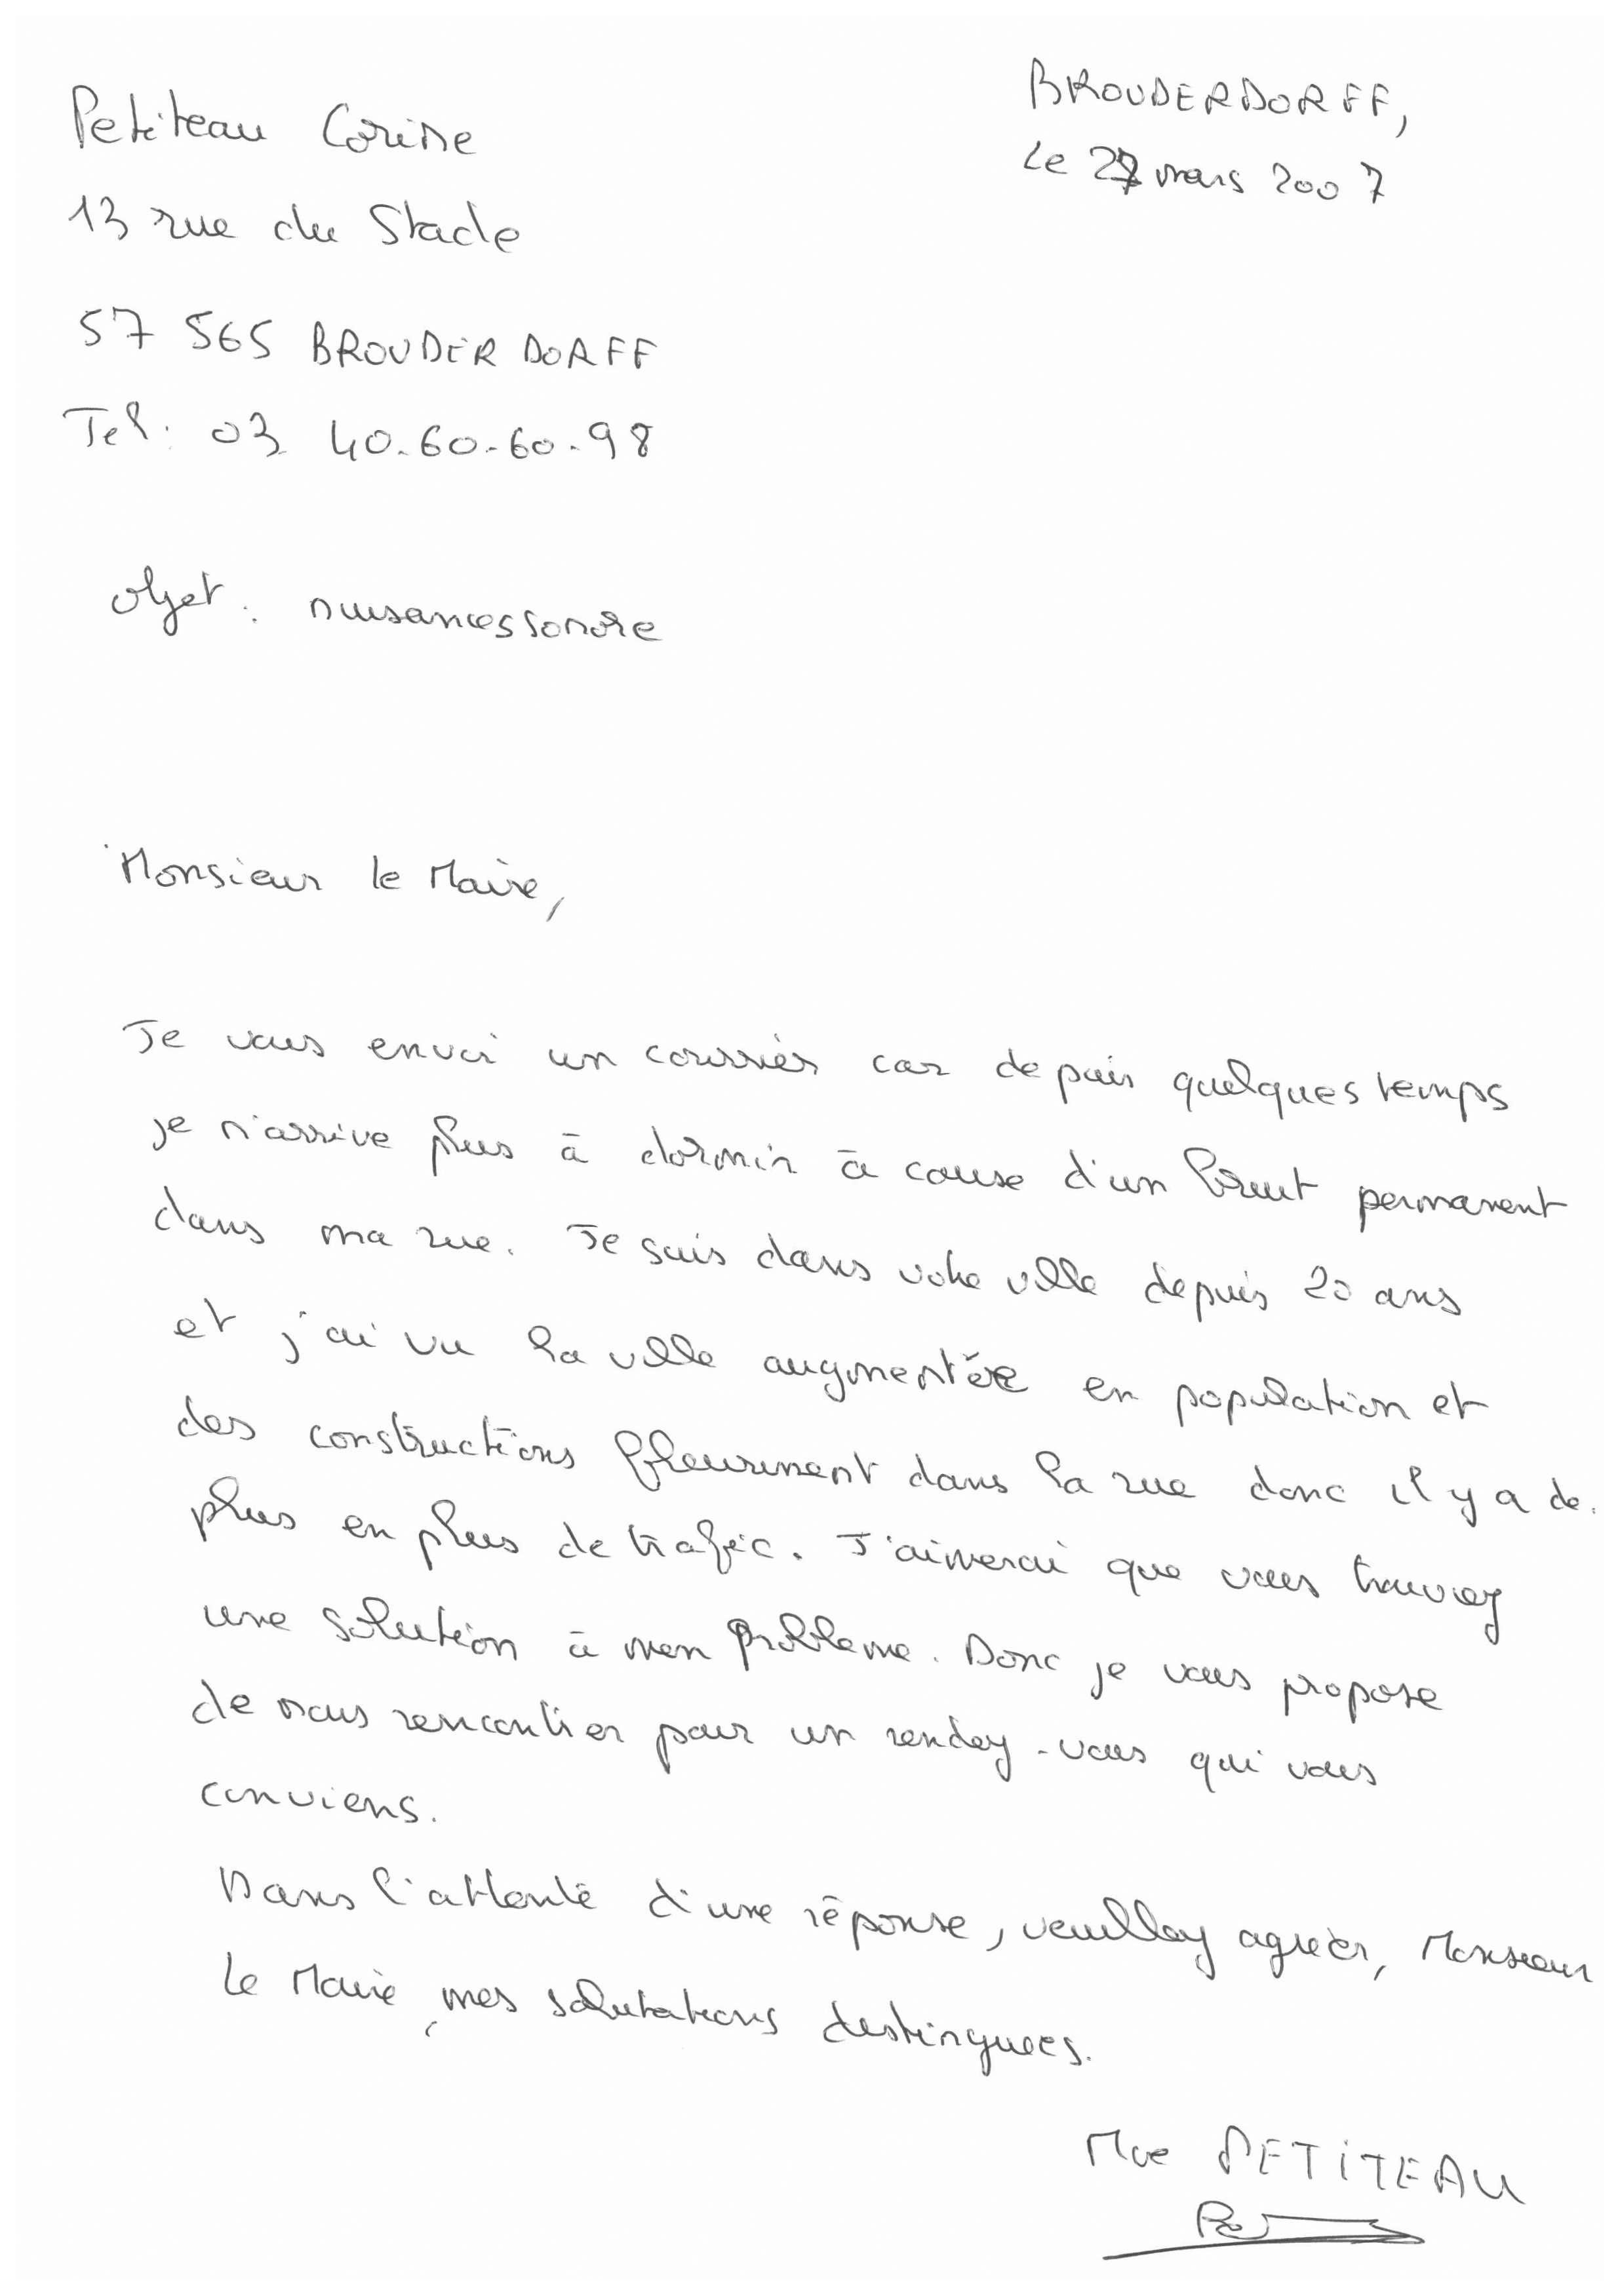 Petiteau Corine
BROUDERDORFF,
Le 27 mars 2007
13 rue du Stade
57 565 BROUDERDORFF
Tel: 03 40.60.60.98
objet : nuisances sonore
Monsieur le Maire,
Je vous envoi un courrier car depuis quelques temps
je n'arrive plus à dormir à cause d'un bruit permanent
dans ma rue. Je suis dans votre ville depuis 20 ans
et j'ai vu la ville augmentée en population et
des constructions fleurinent dans la rue donc il y a de
plus en plus de trafic. J'aimerai que vous trouvez
une solution à mon problème. Donc je vous propose
de nous rencontrer pour un rendez-vous qui vous
conviens.
Dans l'attente d'une réponse, veuillez agréer, Monsieur
le Maire, mes salutations distinguées.
Mme PETITEAU